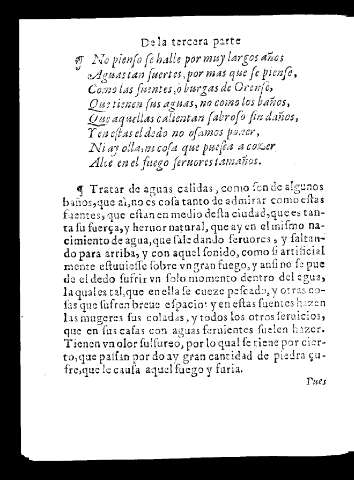 De la tercera parte
¶ No pienso se halle por muy largos años
Aguas tan fuertes, por mas que se piense,
Como las fuentes, o burgas de Orense,
Que tienen sus aguas, no como los baños,
Que aquellas calientan sabroso sin daños,
Y en estas el dedo no osamos poner,
Ni ay olla, ni cosa que pueda a cozer
Alce en el fuego feruores tamaños.
¶ Tratar de aguas calidas, como son de algunos
baños, que ai, no es cosa tanto de admirar como estas
fuentes, que estan en medio desta ciudad, que es tan-
ta su fuerça, y heruor natural, que ay en el mismo na-
cimiento de agua, que sale dando feruores, y saltan-
do para arriba, y con aquel sonido, como si artificial
mente estuuiesse sobre vn gran fuego, y ansi no se pue
de el dedo sufrir vn solo momento dentro del agua,
la qual es tal, que en ella se cueze pescado, y otras co-
sas que sufren breue espacio: y en estas fuentes hazen
las mugeres sus coladas, y todos los otros seruicios,
que en sus casas con aguas feruientes suelen hazer.
Tienen vn olor sulfureo, por lo qual se tiene por cier-
to, que passan por do ay gran cantidad de piedra çu-
fre, que le causa aquel fuego y furia.
Pues